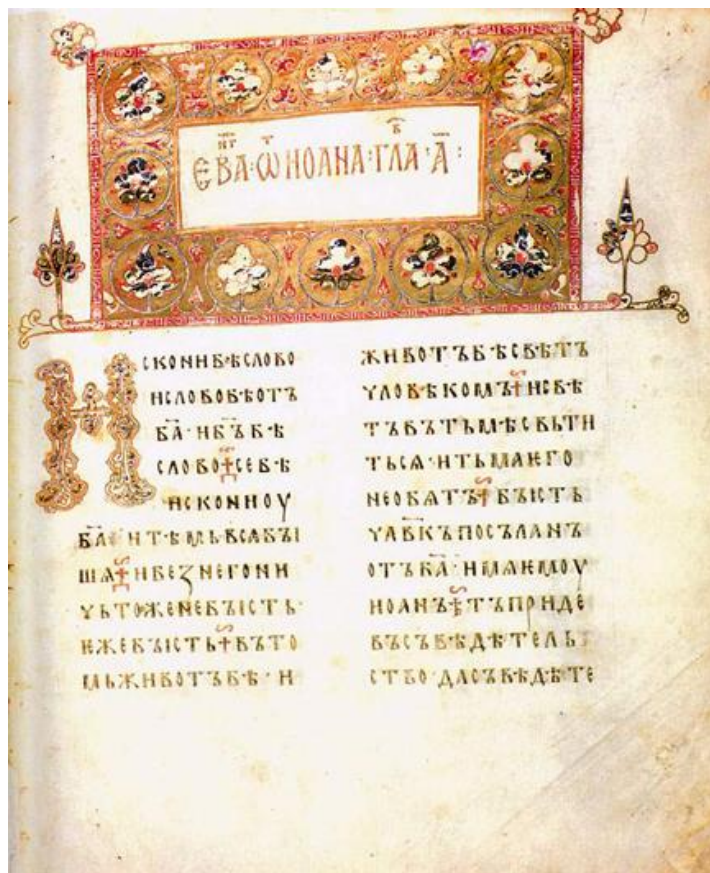 ЕВА҃НГ · Ѿ ИОАНА · ГЛА҃В · А҃ :
ИСКОНИБѢСЛОВО
ИСЛОВОБѢОТЪ
БА҃ · ИБЪ҃БѢ
СЛОВО ⁜ СЕБѢ
ИСКОНИОУ
БА҃ ИТѢМЬВЬСѦБЪІ
ШѦ ⁜ ИБЕЗНЕГОНИ
ЧЬТОЖЕНЕБЪІСТЬ ·
ЕЖЕБЪІСТЬ ⁜ ВЪТО
МЬЖИВОТЪБѢ · И
ЖИВОТЪБѢСВѢТЪ
ЧЛОВѢКОМЪ ⁜ ИСВѢ
ТЪВЪТЬМѢСВЬТИ
ТЬСѦ · ИТЬМАѤГО
НЕОБѦТЪ ⁜ БЪІСТЬ
ЧЛ҃ВКЪПОСЪЛАНЪ
ОТЪБА҃ · ИМѦѤМОУ
ИОАНЪ ⁜ ТЪПРИДЕ
ВЪСЪВѢДѢТЕЛЬ
СТВО · ДАСЪВѢДѢТЕ